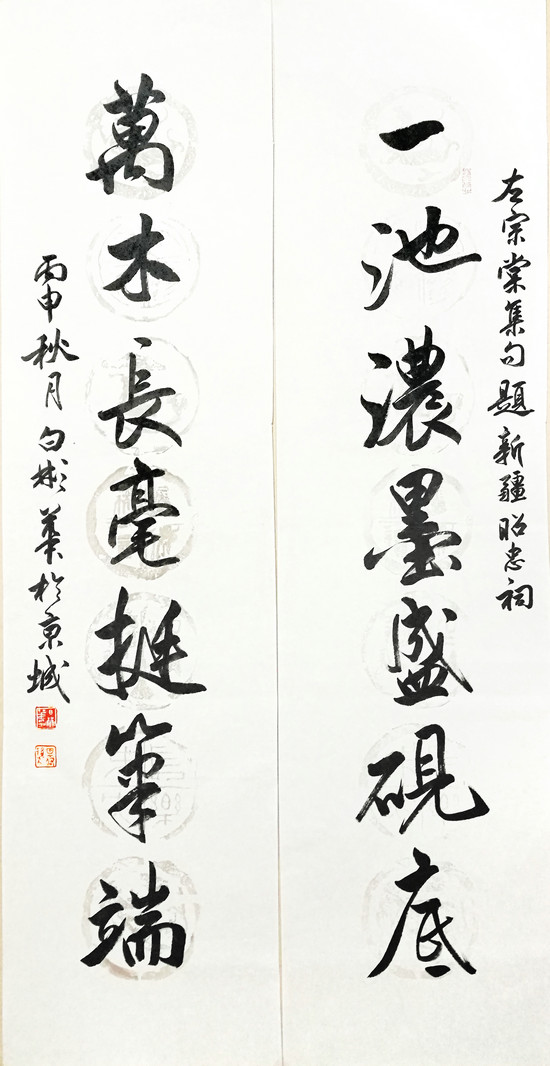 左宗棠集句題新疆昭忠祠
一池濃墨盛硯底
萬木長毫挺筆端
丙申秋月彬華於京城